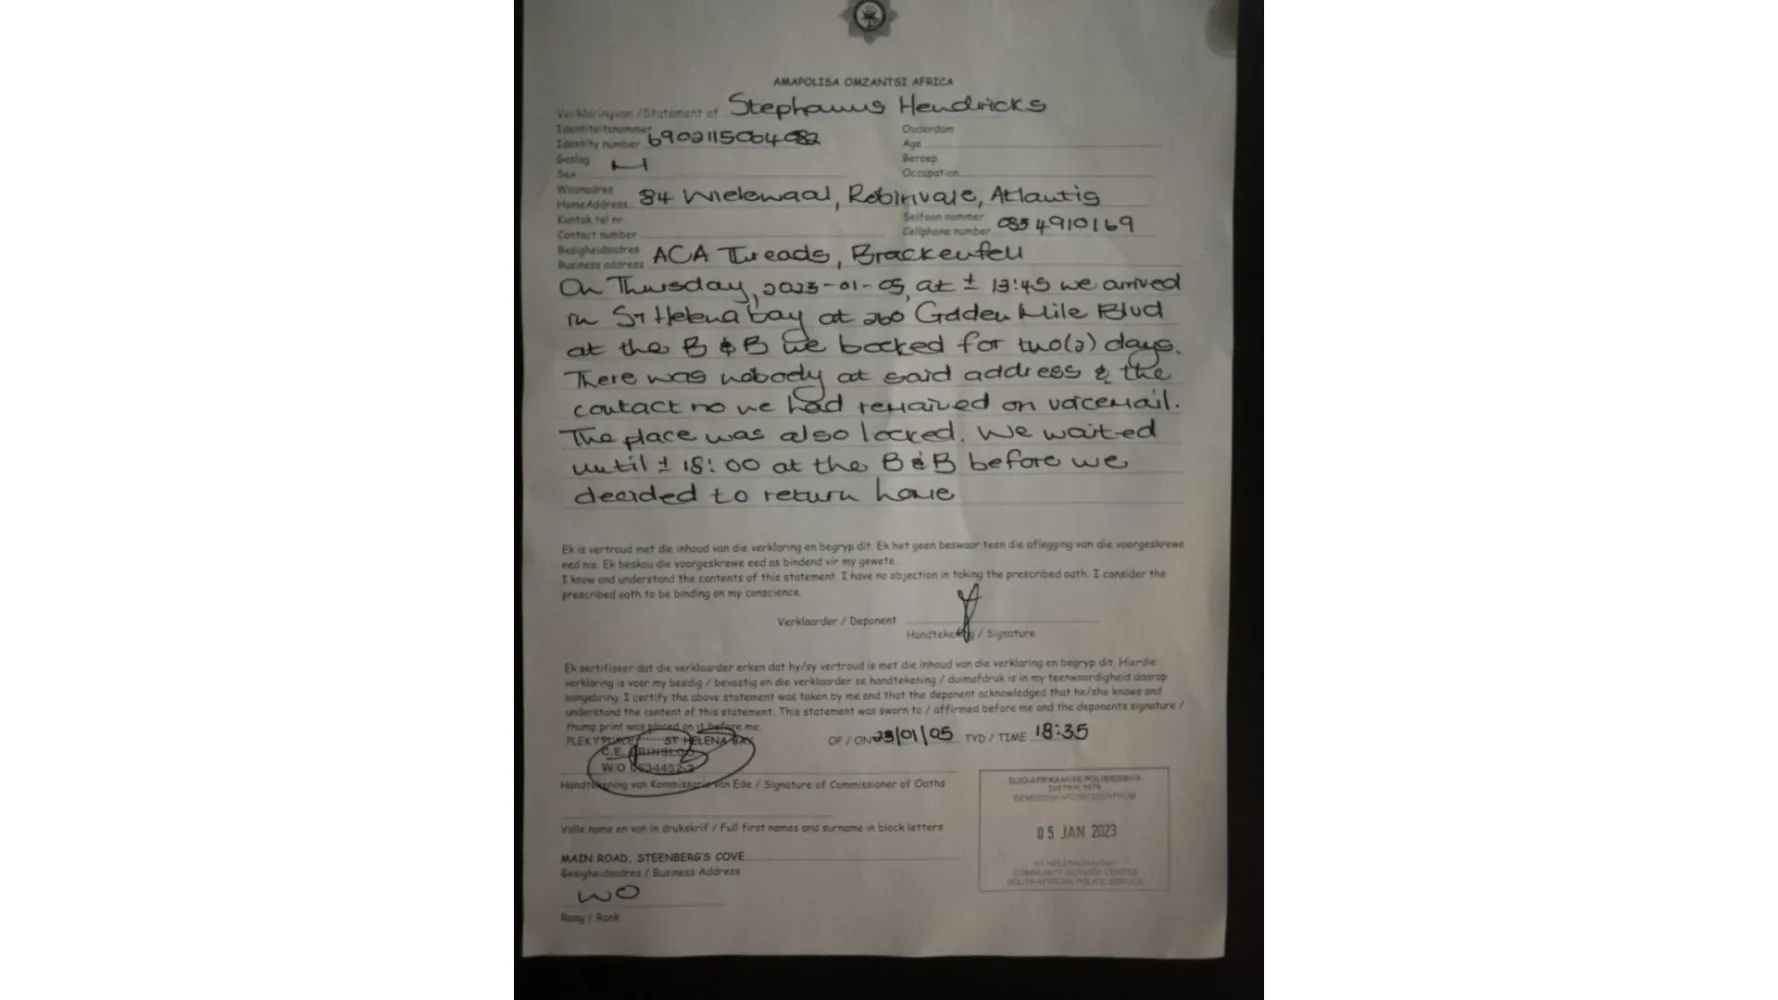 AMAPOLISA OMZANTSI AFRICA
Verklaring van / Statement of Stephanus Hendricks
Identiteitsnommer
Identity number 6902115064082
Ouderdom
Age
Geslag
Sex M
Beroep
Occupation
Woonadres
Home Address 84 Wielewaal, Robinvale, Atlantis
Kontak tel nr
Contact number
Selfoon nommer
Cellphone number 0834910169
Besigheidsadres
Business address ACA Treads, Brackenfell
On Thursday, 2023-01-05, at ± 13:45 we arrived
in St Helena bay at 260 Golden Mile Blvd
at the B & B we booked for two(2) days.
There was nobody at said address & the
contact no we had remained on voicemail.
The place was also locked. We waited
until ± 18:00 at the B & B before we
decided to return home
Ek is vertroud met die inhoud van die verklaring en begryp dit. Ek het geen beswaar teen die aflegging van die voorgeskrewe
eed nie. Ek beskou die voorgeskrewe eed as bindend vir my gewete.
I know and understand the contents of this statement. I have no objection in taking the prescribed oath. I consider the
prescribed oath to be binding on my conscience.
Verklaarder / Deponent
Handtekening / Signature
Ek sertifiseer dat die verklaarder erken dat hy/sy vertroud is met die inhoud van die verklaring en begryp dit. Hierdie
verklaring is voor my beedig / bevestig en die verklaarder se handtekening / duimafdruk is in my teenwoordigheid daarop
aangebring. I certify the above statement was taken by me and that the deponent acknowledged that he/she knows and
understand the content of this statement. This statement was sworn to / affirmed before me and the deponents signature /
thump print was placed on it before me.
PLEK / PLACE ST HELENA BAY
OP / ON 23/01/05 TYD / TIME 18:35
C.E.
W/O
Handtekening van Kommissaris van Ede / Signature of Commissioner of Oaths
Volle name en van in drukskrif / Full first names and surname in block letters
MAIN ROAD, STEENBERG'S COVE
Besigheidsadres / Business Address
WO
Rang / Rank
SUID-AFRIKAANSE POLISIEDIENS
GEMEENSKAPSDIENSSENTRUM
05 JAN 2023
COMMUNITY SERVICE CENTRE
SOUTH AFRICAN POLICE SERVICE